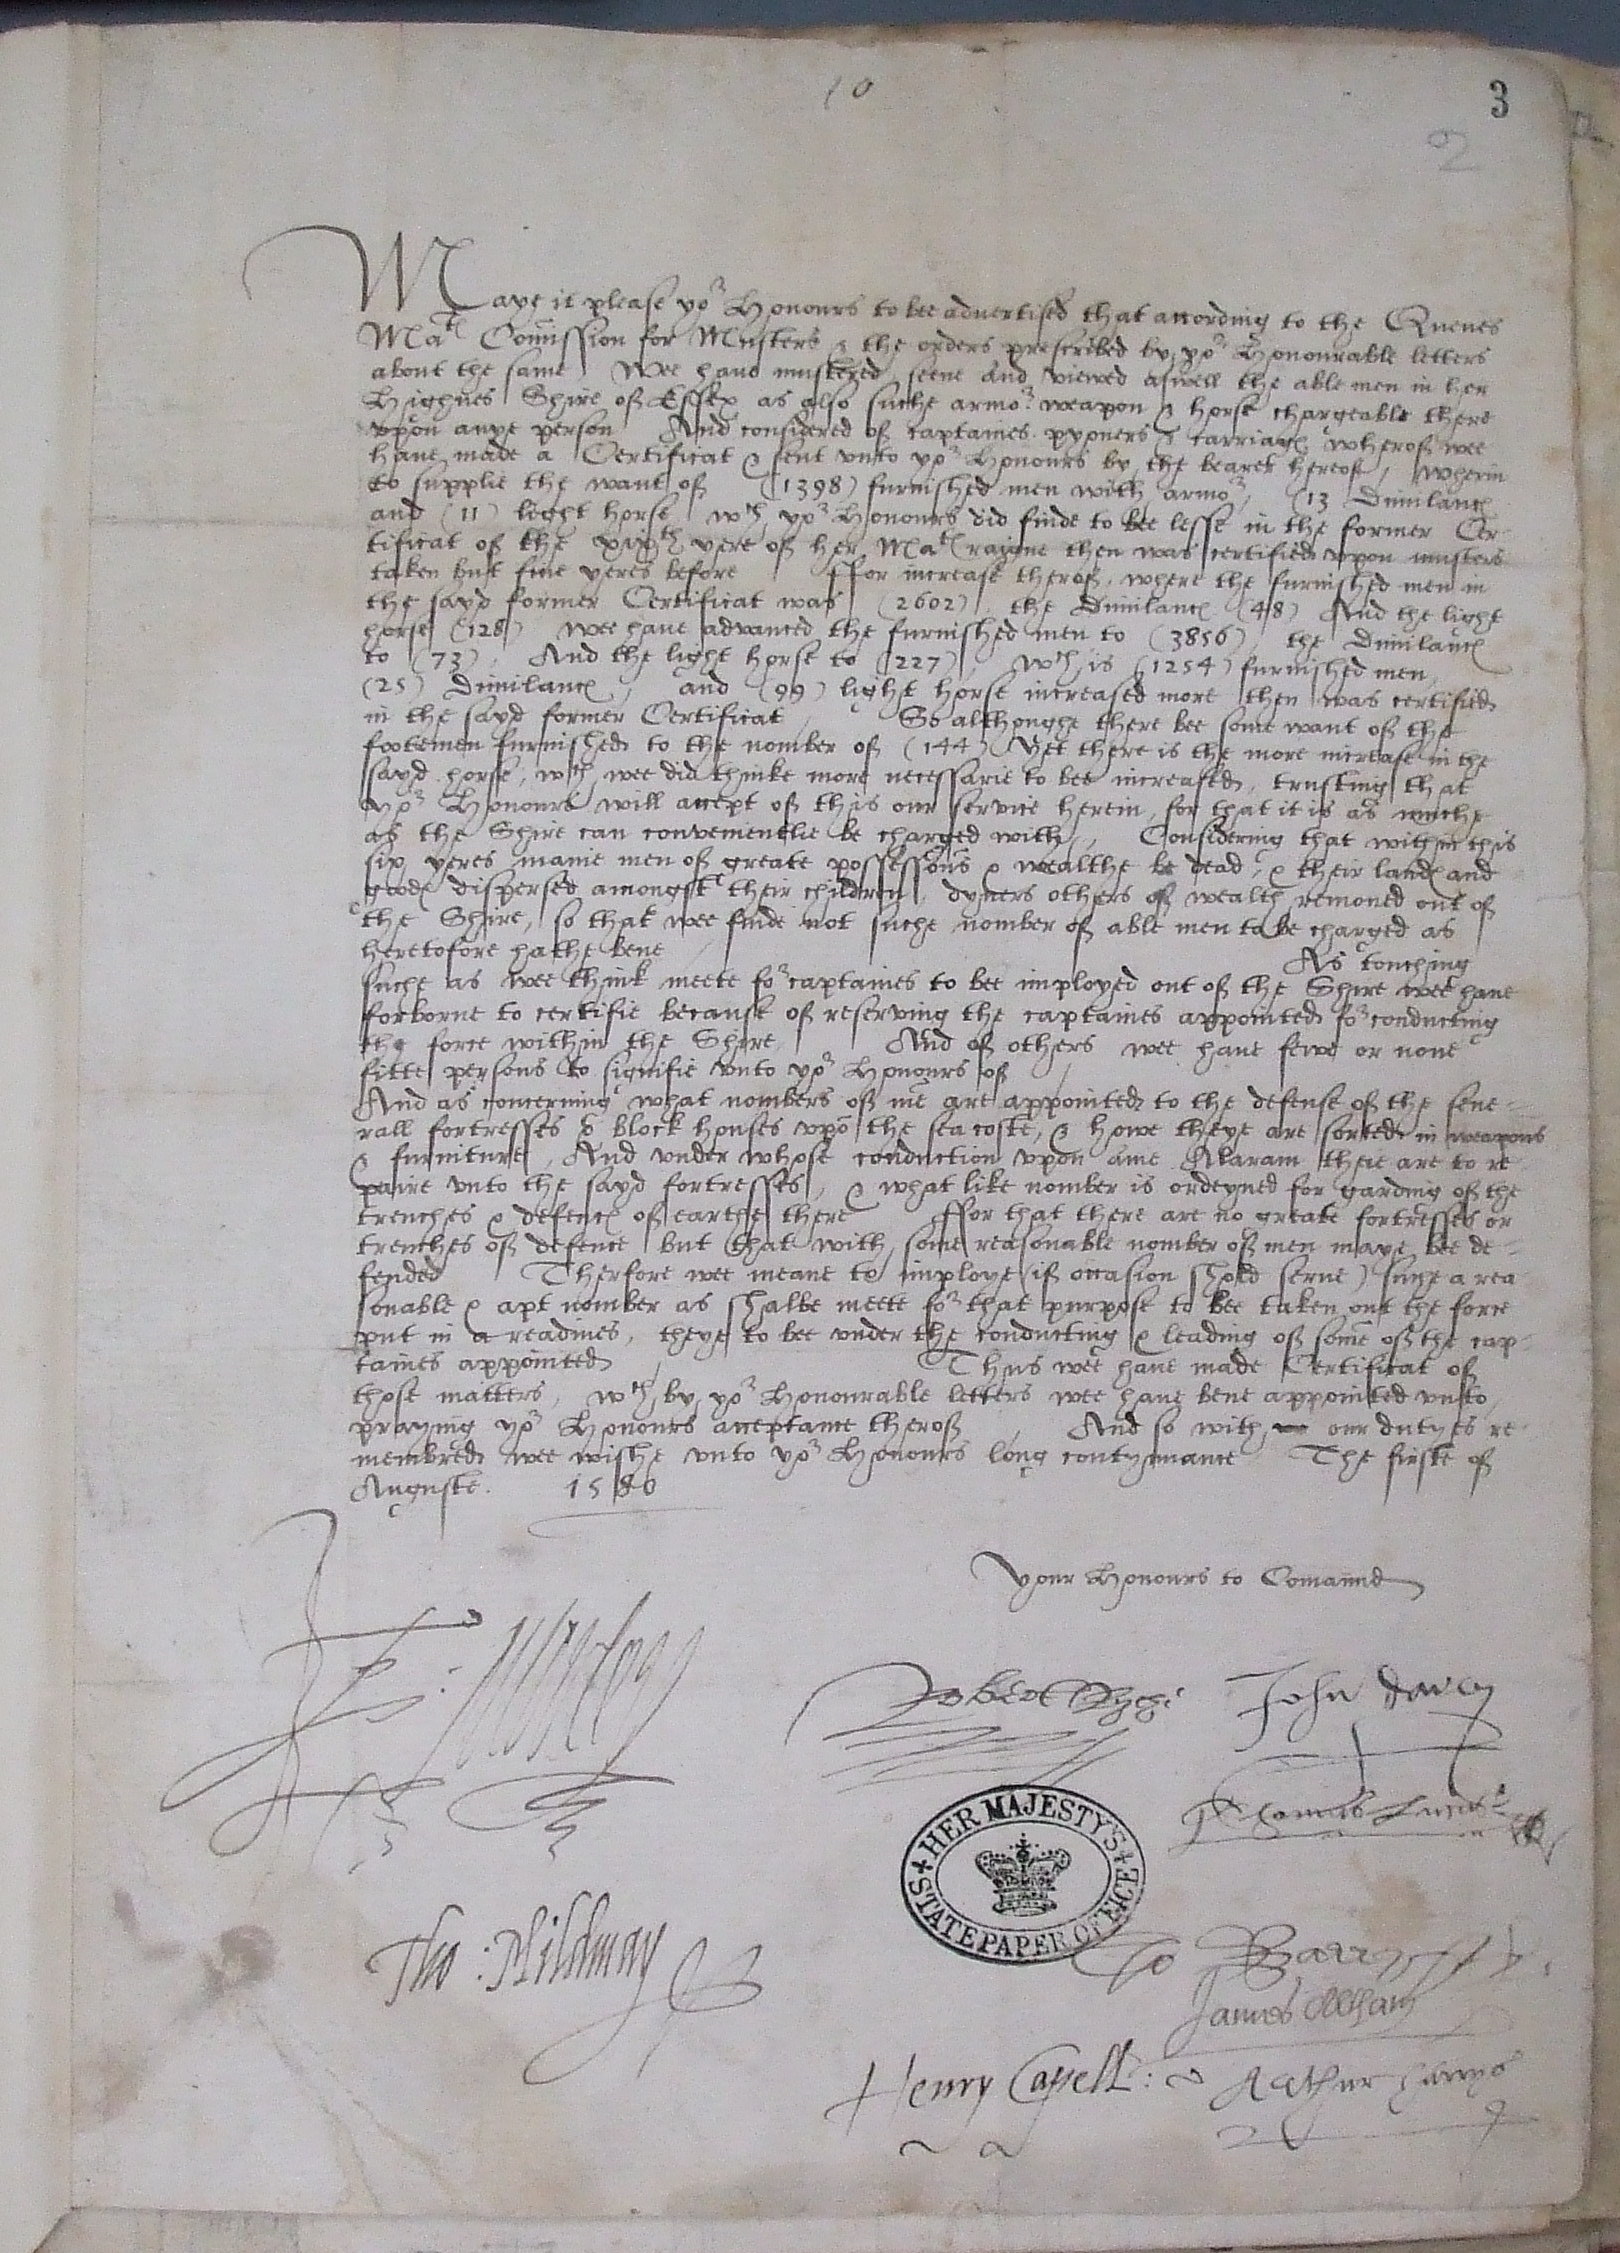 10
3
2
Maye it please yor Honours to bee aduertised that according to the Quenes
Mats Comission for Musters & the orders prescribed by yor Honourable letters
about the same Wee haue mustered seene and viewed aswell the able men in her
Highnes Shire of Essex as also suche armor weapon & horse chargeable there
vpon anye person And considered of captaines pyoners & carriages wherof wee
haue made a Certificat & sent vnto yor Honours by the bearer hereof, Wherin
to supplie the want of (1398) furnished men with armor, (13 Dimilances
and (11) leight horse wch yor Honours did finde to bee lesse in the former Cer-
tificat of the xixth yere of her Mats raigne then was certified vpon musters
taken but fiue yeres before ffor increase therof, where the furnished men in
the sayd former Certificat was (2602), the Dimilances (48) And the light
horse (128) wee haue advanced the furnished men to (3856), the Dimilances
to (73), And the light horse to (227), wch is (1254) furnished men,
(25) Dimilances, and (99) light horse increased more then was certified
in the sayd former Certificat, So althoughe there bee some want of the
footemen furnished to the nomber of (144) Yet there is the more increase in the
sayd horse, wch wee did thinke more necessarie to bee increased, trusting that
yor Honours will accept of this our service herein, for that it is as muche
as the Shire can convenientlie be charged with, Considering that within this
six yeres manie men of greate possessions & wealthe be dead, & their landes and
goodes dispersed amongst their children, dyuers others of wealth remoued out of
the Shire, so that wee finde not suche nomber of able men to be charged as
heretofore hathe bene
As touching
suche as wee think meete for captaines to bee imployed out of the Shire wee haue
forborne to certifie because of reserving the captaines appointed for conducting
the force within the Shire, And of others wee haue fewe or none
fitte persons to signifie vnto yor Honours of
And as concerning what nombers of me are appointed to the defense of the seue-
rall fortresses & block houses vpo the sea coste, & howe theye are sorted in weapons
& furniture, And vnder whose conduction vpon anie Alaram their are to re-
paire vnto the sayd fortresses, & what like nomber is ordeyned for garding of the
trenches & defences of earthe there ffor that there are no greate fortresses or
trenches of defence but that with some reasonable nomber of men maye bee de-
fended Therfore wee meane to imploye (if occasion shold serue) suche a rea
sonable & apt nomber as shalbe meete for that purpose to bee taken out the force
put in a readines, theye to bee vnder the conducting & leading of some of the cap-
taines appointed Thus wee haue made Certificat of
those matters, wch by yor Honourable letters wee haue bene appointed vnto,
praying yor Honours acceptance therof And so with our dutyes re-
membred wee wishe vnto yor Honours long contynuance The firste of
Auguste. 1580
Your Honours to Comaund
Robert Ryche John Darcy
Thomas Lucas
HER MAJESTY'S STATE PAPER OFFICE
Tho: Mildmay
James Altham
Henry Capell: Arthur Harrys